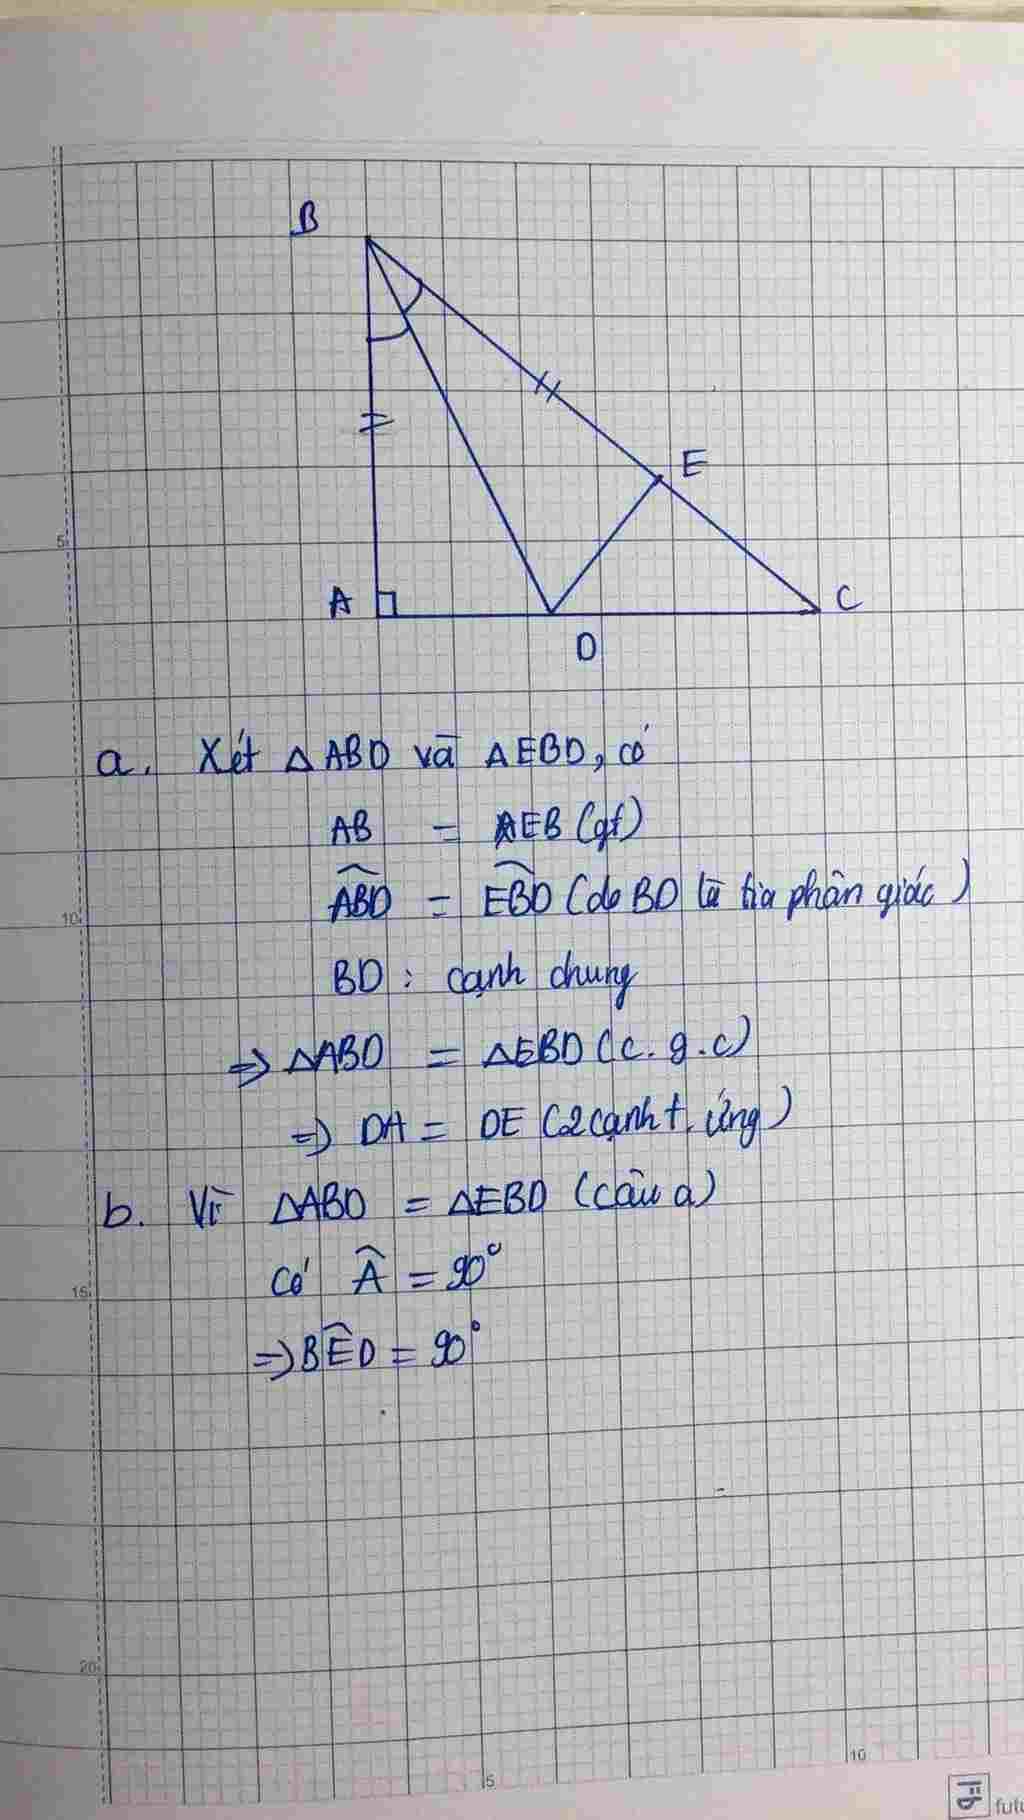 B
E
A
C
D
5
a. Xét △ABD và △EBD, có
AB = EB (gt)
10
ABD = EBD (do BD là tia phân giác)
BD : cạnh chung
⇒ △ABD = △EBD (c.g.c)
⇒ DA = DE (2 cạnh t. ứng)
b. Vì △ABD = △EBD (câu a)
15
Có Â = 90°
⇒ BÊD = 90°
20
10
5